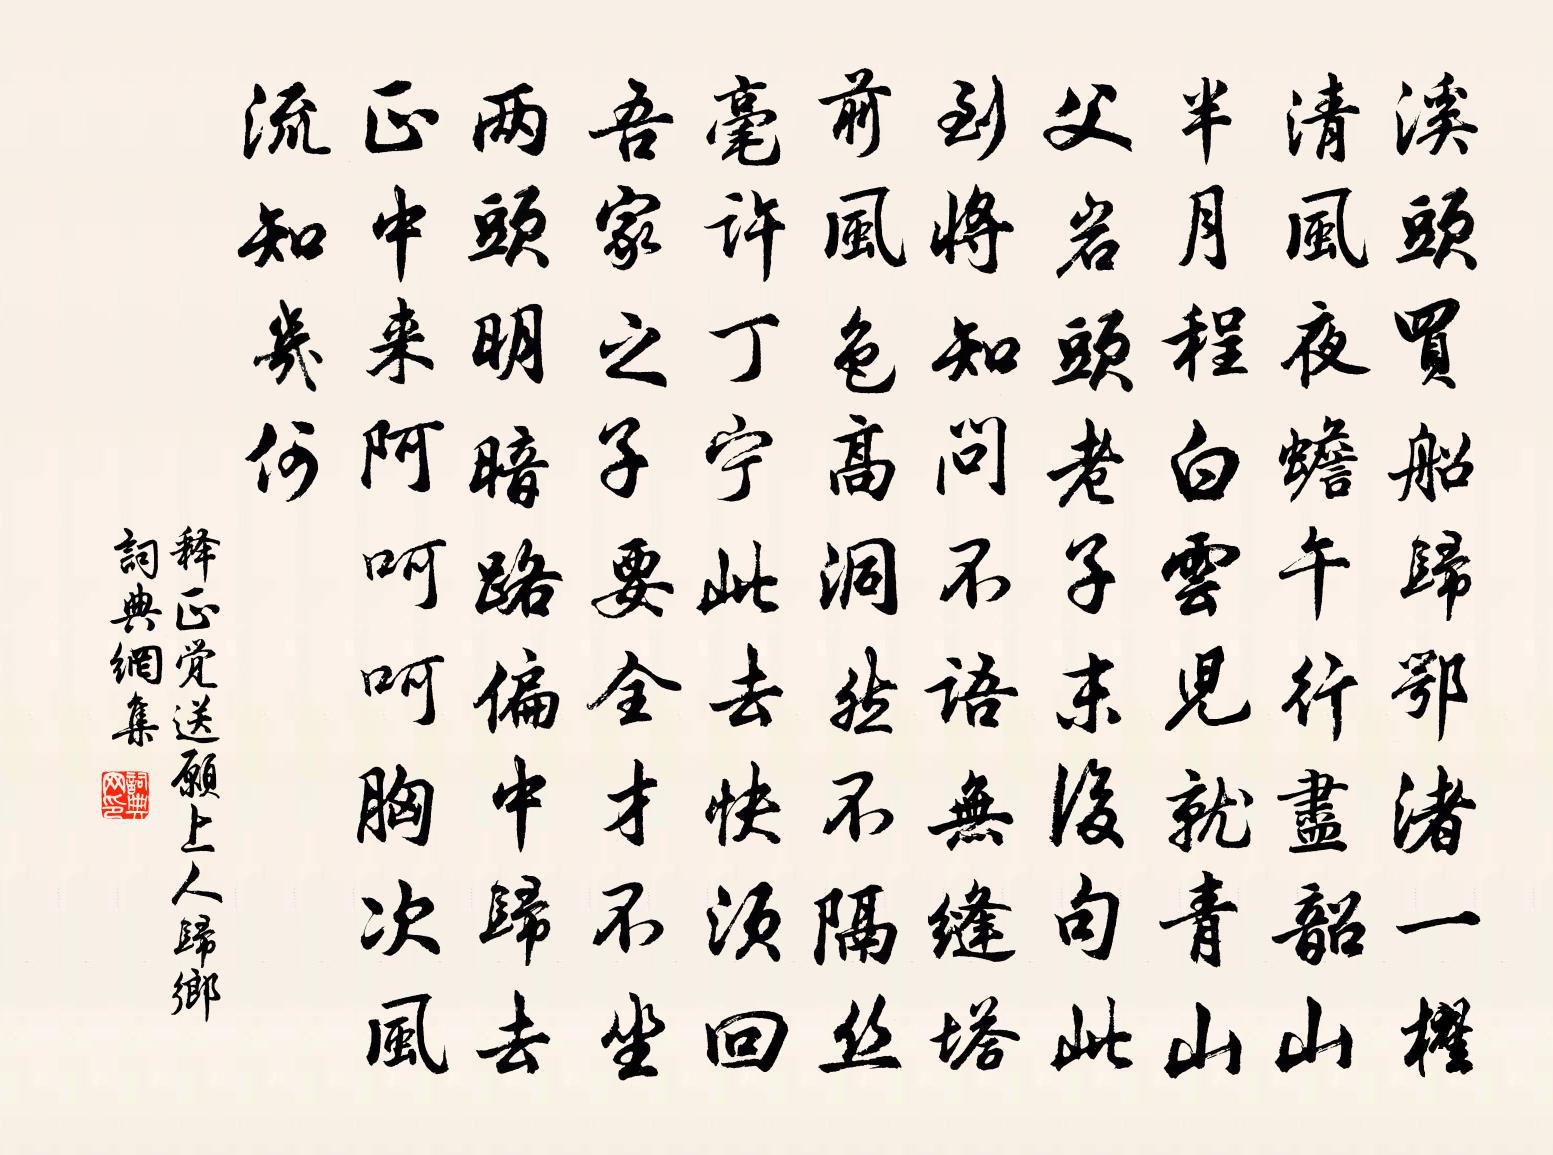 溪頭買船歸鄂渚一櫂
清風夜蟾午行盡韶山
半月程白雲児就青山
父岩頭老子末後句此
到將知問不語無縫塔
前風色高洞然不隔丝
毫许丁宁此去快须回
吾家之子要全才不坐
两頭明暗路偏中歸去
正中来阿呵呵胸次風
流知幾何
释正觉送願上人歸鄉
詞典網集
詞典网印